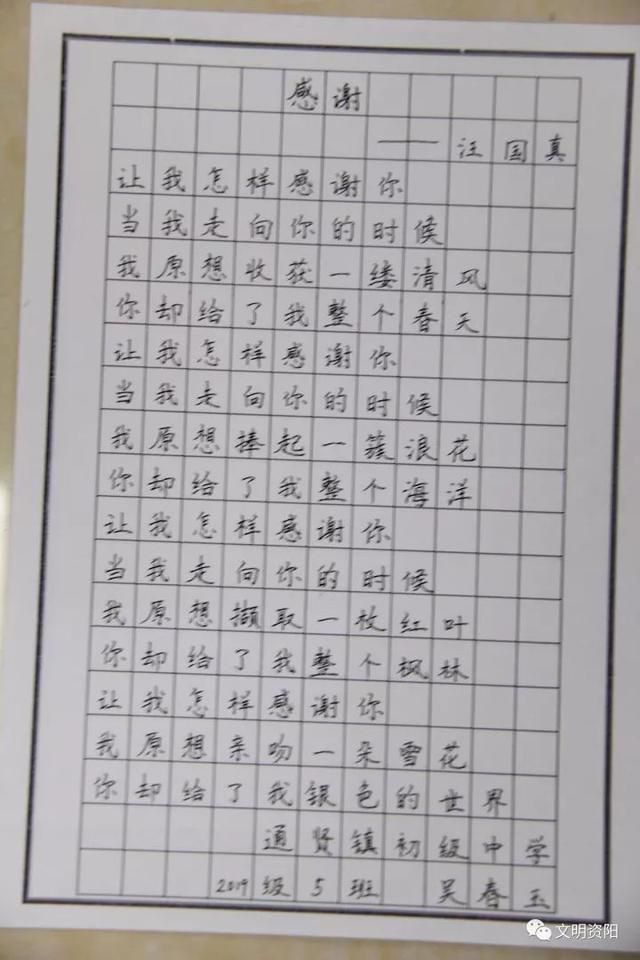 感谢
——汪国真
让我怎样感谢你
当我走向你的时候
我原想收获一缕清风
你却给了我整个春天
让我怎样感谢你
当我走向你的时候
我原想捧起一簇浪花
你却给了我整个海洋
让我怎样感谢你
当我走向你的时候
我原想撷取一枚红叶
你却给了我整个枫林
让我怎样感谢你
我原想亲吻一朵雪花
你却给了我银色的世界
通贤镇初级中学
2019级5班 吴春玉
文明资阳